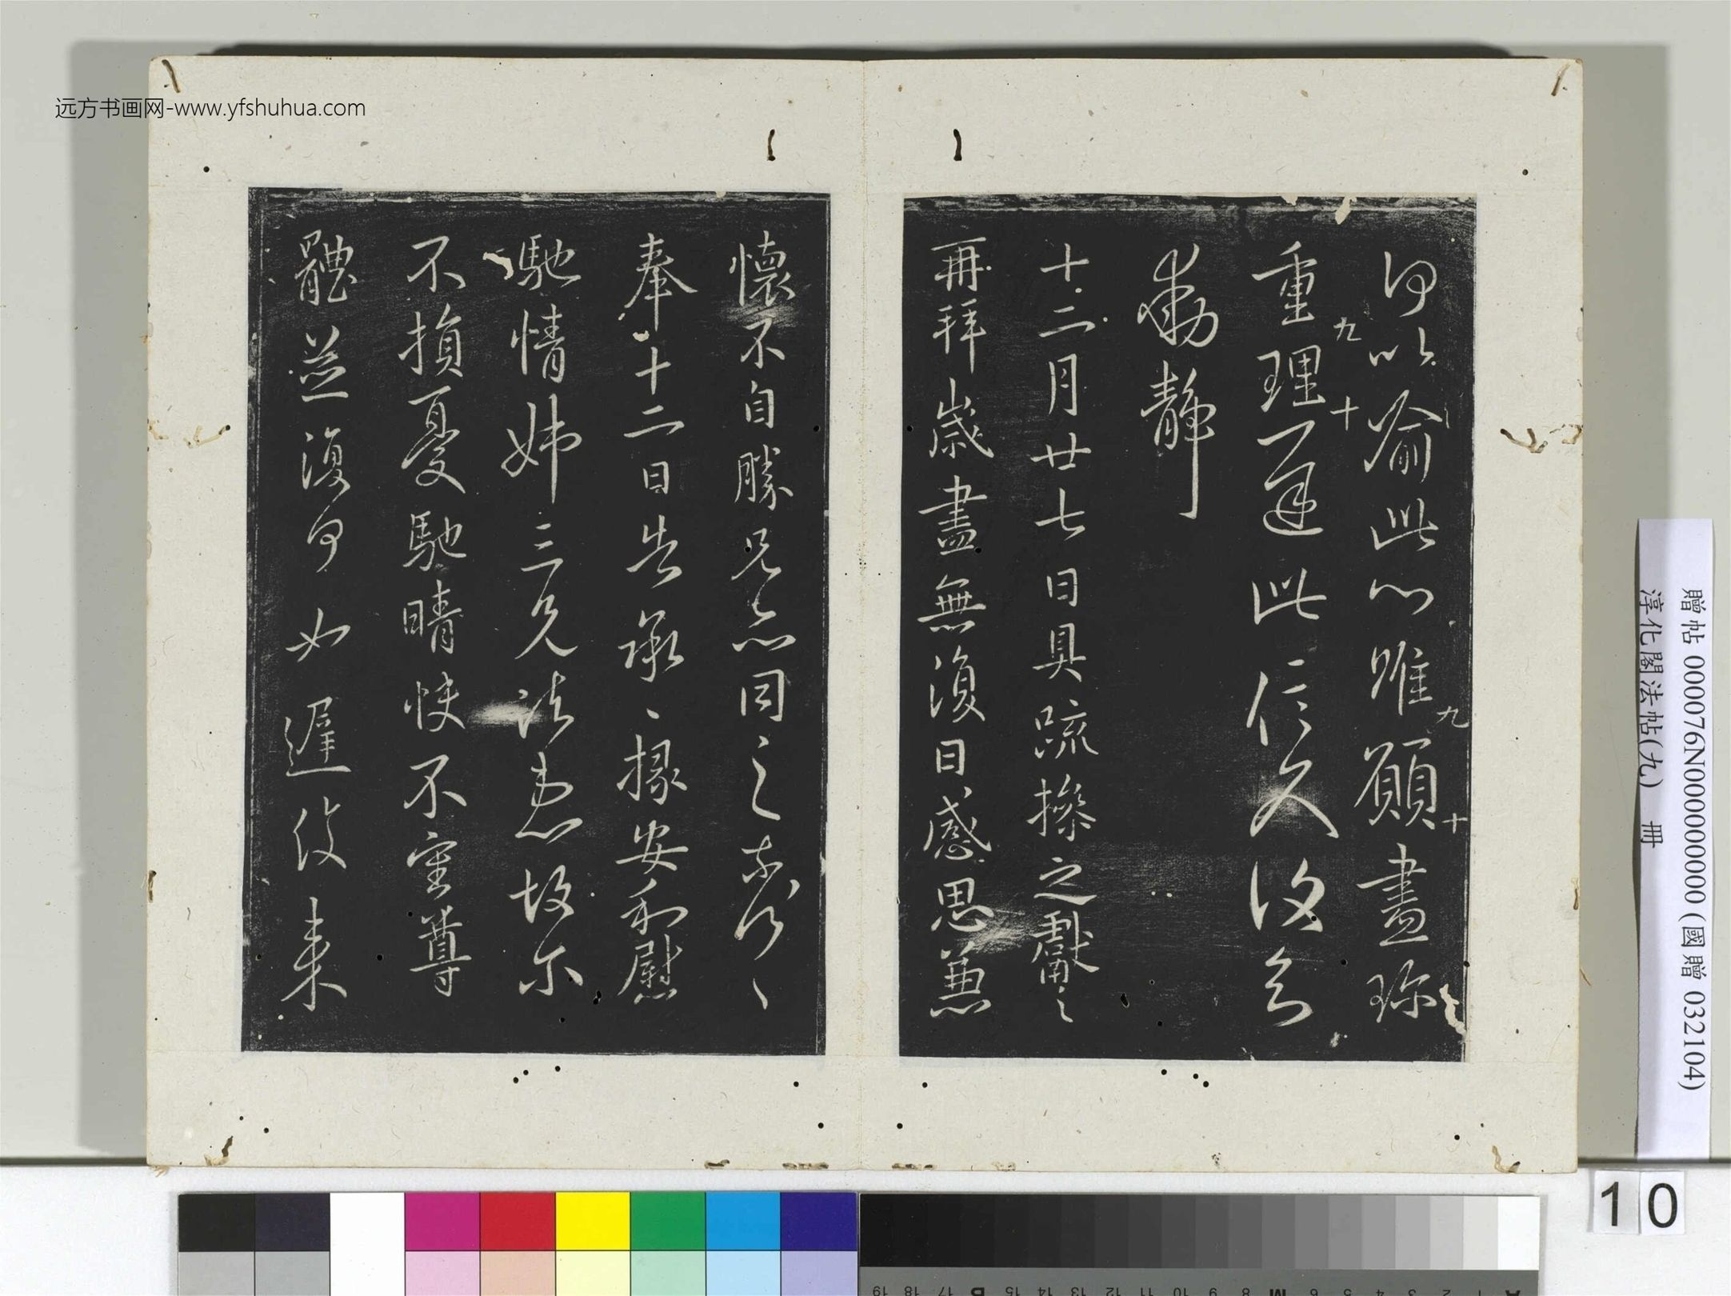 何以喻此心唯願盡珍
九 十
重理遲此信反復知
九 十
動靜
十二月廿七日具疏操之獻之
再拜歲盡無復日感思兼
懷不自勝兄亦同之奈何〻
奉十二日告承〻據安和慰
馳情姊三兄諸患故爾
不損憂馳晴快不審尊
體並復何如遲後來
远方书画网-www.yfshuhua.com
贈帖 000076N000000000 (國贈 032104)
淳化閣法帖(九) 冊
10